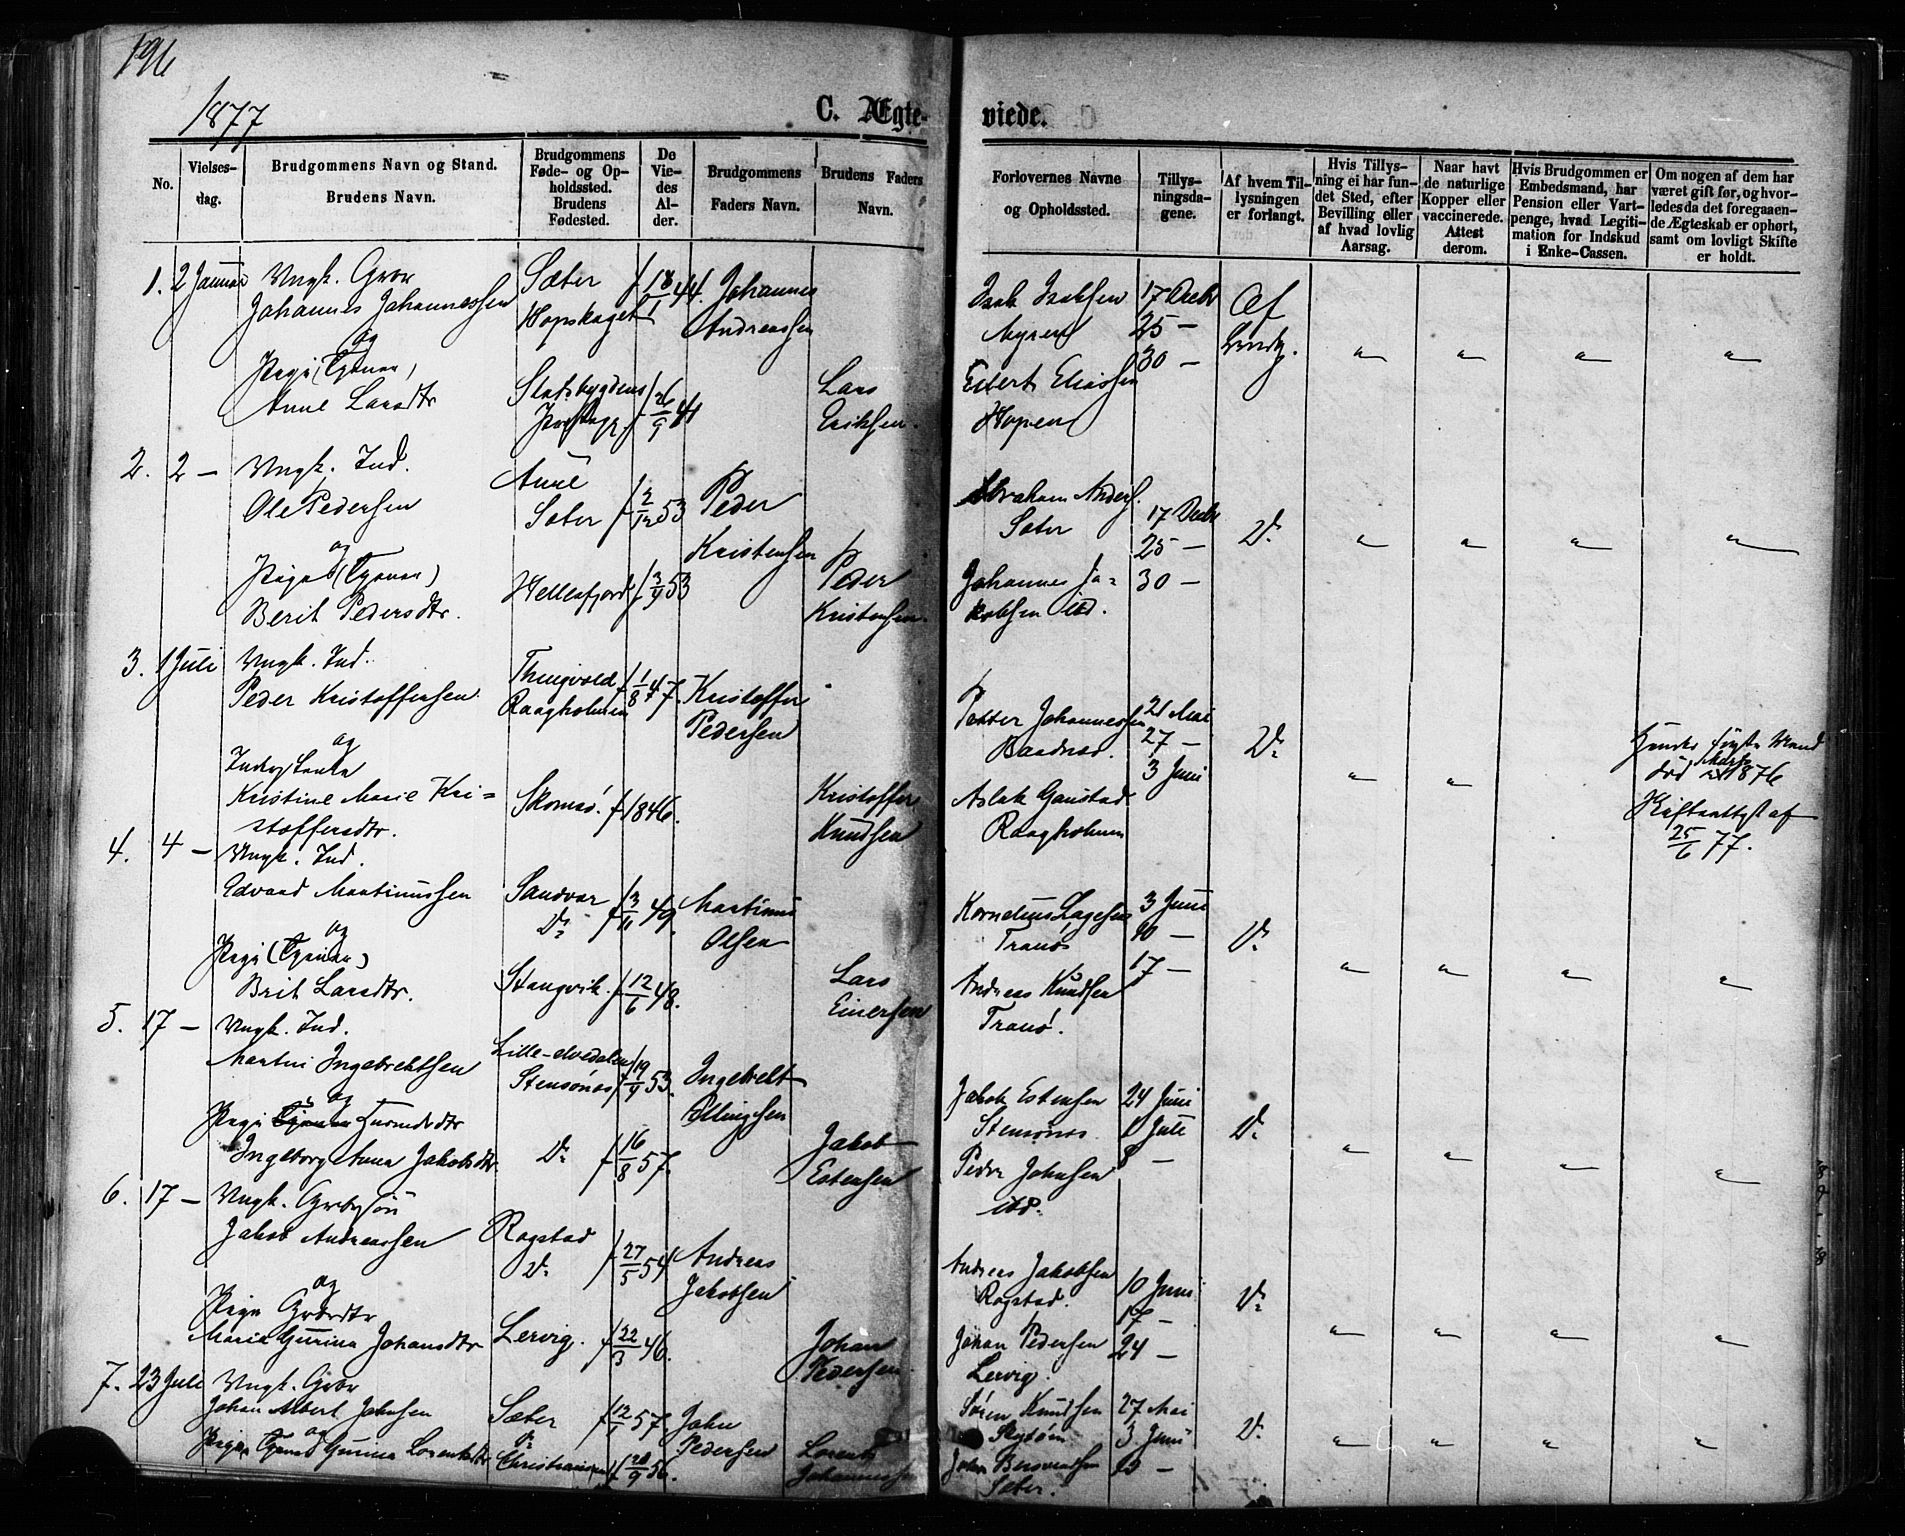 196
1877
C. Ægte-
viede.
No.
Vielses-
dag.
Brudgommens Navn og Stand.
Brudens Navn.
Brudgommens
Føde- og Op-
holdssted.
Brudens
Fødested.
De
Vie-
des
Al-
der.
Brudgommens
Faders Navn.
Brudens Faders
Navn.
Forlovernes Navne
og Opholdssted.
Tillys-
ningsda-
gene.
Af hvem Til-
lysningen
er forlangt.
Hvis Tillys-
ning ei har fun-
det Sted, efter
Bevilling eller
af hvad lovlig
Aarsag.
Naar havt
de naturlige
Kopper eller
vaccinerede.
Attest
derom.
Hvis Brudgommen er
Embedsmand, har
Pension eller Vart-
penge, hvad Legiti-
mation for Indskud
i Enke-Cassen.
Om nogen af dem har
været gift før, og hvor-
ledes da det foregaaen-
de Ægteskab er ophørt,
samt om lovligt Skifte
er holdt.
1. 2 Januar Ungk. Gbr
Johannes Johannessen
og
Pige (Tjener)
Anne Larsdtr
Sæter
Hopskaget
f 18/1 44.
f 26/9 41
Johannes
Andreassen
Lars
Eriksen.
Isak Isaksen
Myren
Eilert Eliassen
Hopen
17 Decbr
25 —
30 —
Af
" " " "
2. 2 — Ungk. Ind.
Ole Pedersen
og
Pige (Tjener)
Berit Pedersdtr.
Aune
Sæter
Hellefjord
f 2/12 53
f 3/9 53
Peder
Kristensen
Peder
Kristensen.
Abraham Anders.
Sæter
Johannes Ja-
kobsen ibd.
17 Decbr
25 —
30 —
Do
" " " "
3. 1 Juli Ungk. Ind.
Peder Kristoffersen
og
Kristine Marie Kri-
stoffersdtr.
Thingvold
Raagholmen
f 1/8 47.
f 1846.
Kristoffer
Pedersen
Kristoffer
Knudsen
Petter Johannessen
Aslak Gaustad
Raagholmen
21 Mai
27 —
3 Juni
Do
" "
død Marts 1876
Skifteattest af
25/6 77.
4. 4 — Ungk. Ind.
Edvard Martinussen
og
Pige (Tjener)
Brit Larsdtr.
Sandvær
Do
Stangvik.
f 3/11 49.
f 12/6 48.
Martinus
Olsen
Lars
Einersen
Kornelius Lagesen
Tranø
Andreas Knudsen
Tranø.
3 Juni
10 —
17 —
Do
" " " "
5. 17 — Ungk. Ind.
Martin Ingebrektsen
og
Pige Tjener Huusmdsdtr
Ingeborg Anna Jakobsdtr
Lille-elvedalen
Stensønes
Do
f 19/9 53.
f 16/8 57.
Ingebrekt
Ellingsen
Jakob
Estensen
Jakob Estensen
Stensønes.
Peder Johnsen
ibd.
24 Juni
1 Juli
8 —
Do
" " " "
6. 17 — Ungk. Gbrsøn
Jakob Andreassen
og
Pige Gbrdtr
Marie Gurina Johansdtr
Rogstad
Do
Lervig.
f 27/5 54
f 22/3 46.
Andreas
Jakobsen
Johan
Pedersen
Andreas Jakobsen
Rogstad.
Johan Pedersen
Lervig.
10 Juni
17 —
24 —
Do
" " " "
7. 23 Juli Ungk. Gbr
Johan Albert Johnsen
og
Pige Tjener Gurina Lorentsdtr
Sæter
Do
f 12/1 57.
f 20/9 56.
John
Pedersen
Lorents
Johannessen
Søren Knudsen
Sæter.
27 Mai
3 Juni
10 —
Do
" " " "